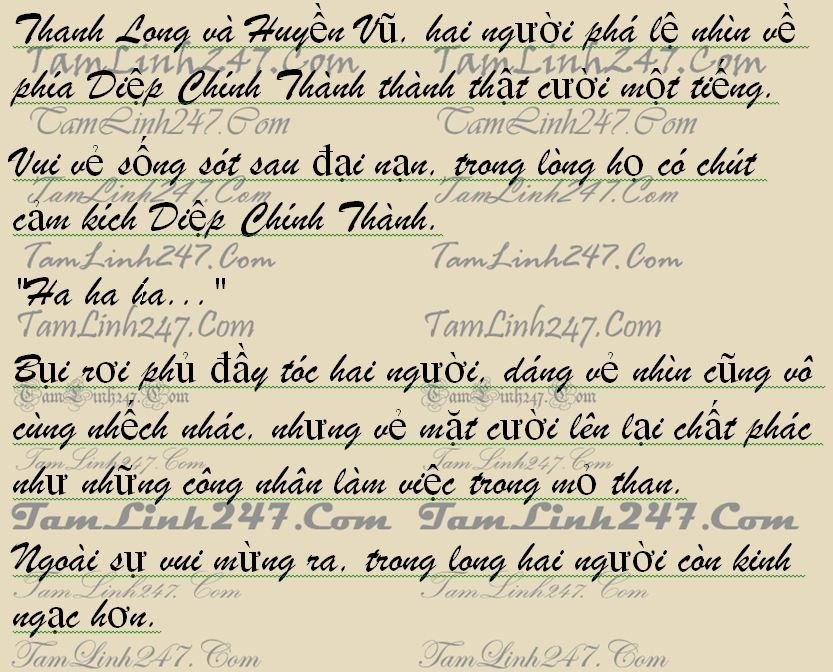 Thanh Long và Huyền Vũ, hai người phá lệ nhìn về
TamLinh247.Com TamLinh247.Com
phía Diệp Chính Thành thành thật cười một tiếng.
TamLinh247.Com TamLinh247.Com
Vui vẻ sống sót sau đại nạn, trong lòng họ có chút
TamLinh247.Com TamLinh247.Com
cảm kích Diệp Chính Thành.
TamLinh247.Com TamLinh247.Com
"Ha ha ha..."
TamLinh247.Com TamLinh247.Com
Bụi rơi phủ đầy tóc hai người, dáng vẻ nhìn cũng vô
TamLinh247.Com TamLinh247.Com
cùng nhếch nhác, nhưng vẻ mặt cười lên lại chất phác
TamLinh247.Com TamLinh247.Com
như những công nhân làm việc trong mỏ than.
TamLinh247.Com TamLinh247.Com
Ngoài sự vui mừng ra, trong long hai người còn kinh
TamLinh247.Com TamLinh247.Com
ngạc hơn.
TamLinh247.Com TamLinh247.Com